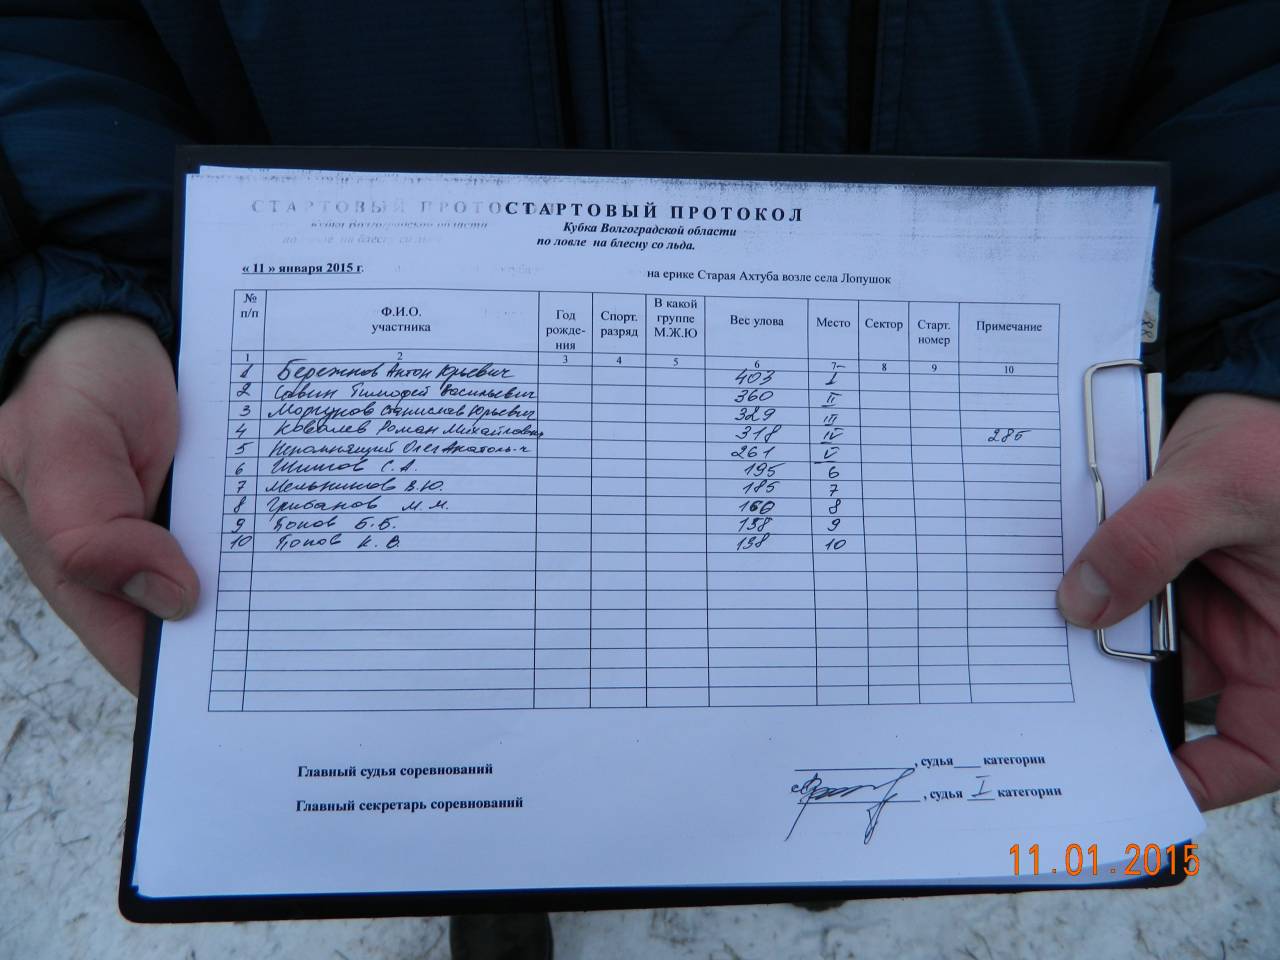 СТАРТОВЫЙ ПРОТОКОЛ
Кубка Волгоградской области
по ловле на блесну со льда.
« 11 » января 2015 г.
на ерике Старая Ахтуба возле села Лопушок
№ п/п Ф.И.О. участника Год рожде-ния Спорт. разряд В какой группе М.Ж.Ю Вес улова Место Сектор Старт. номер Примечание
1 2 3 4 5 6 7 8 9 10
1 Бережнов Антон Юрьевич 403 I
2 Савин Тимофей Васильевич 360 II
3 Моргунов Станислав Юрьевич 329 III
4 Ковалев Роман Михайлович 318 IV 285
5 Непомнящий Олег Анатоль-ч 261 V
6 С.А. 195 6
7 Мельников В.Ю. 185 7
8 Грибанов М.М. 160 8
9 Попов Б.Б. 158 9
10 Попов К.В. 138 10
Главный судья соревнований , судья категории
Главный секретарь соревнований , судья I категории
11.01.2015